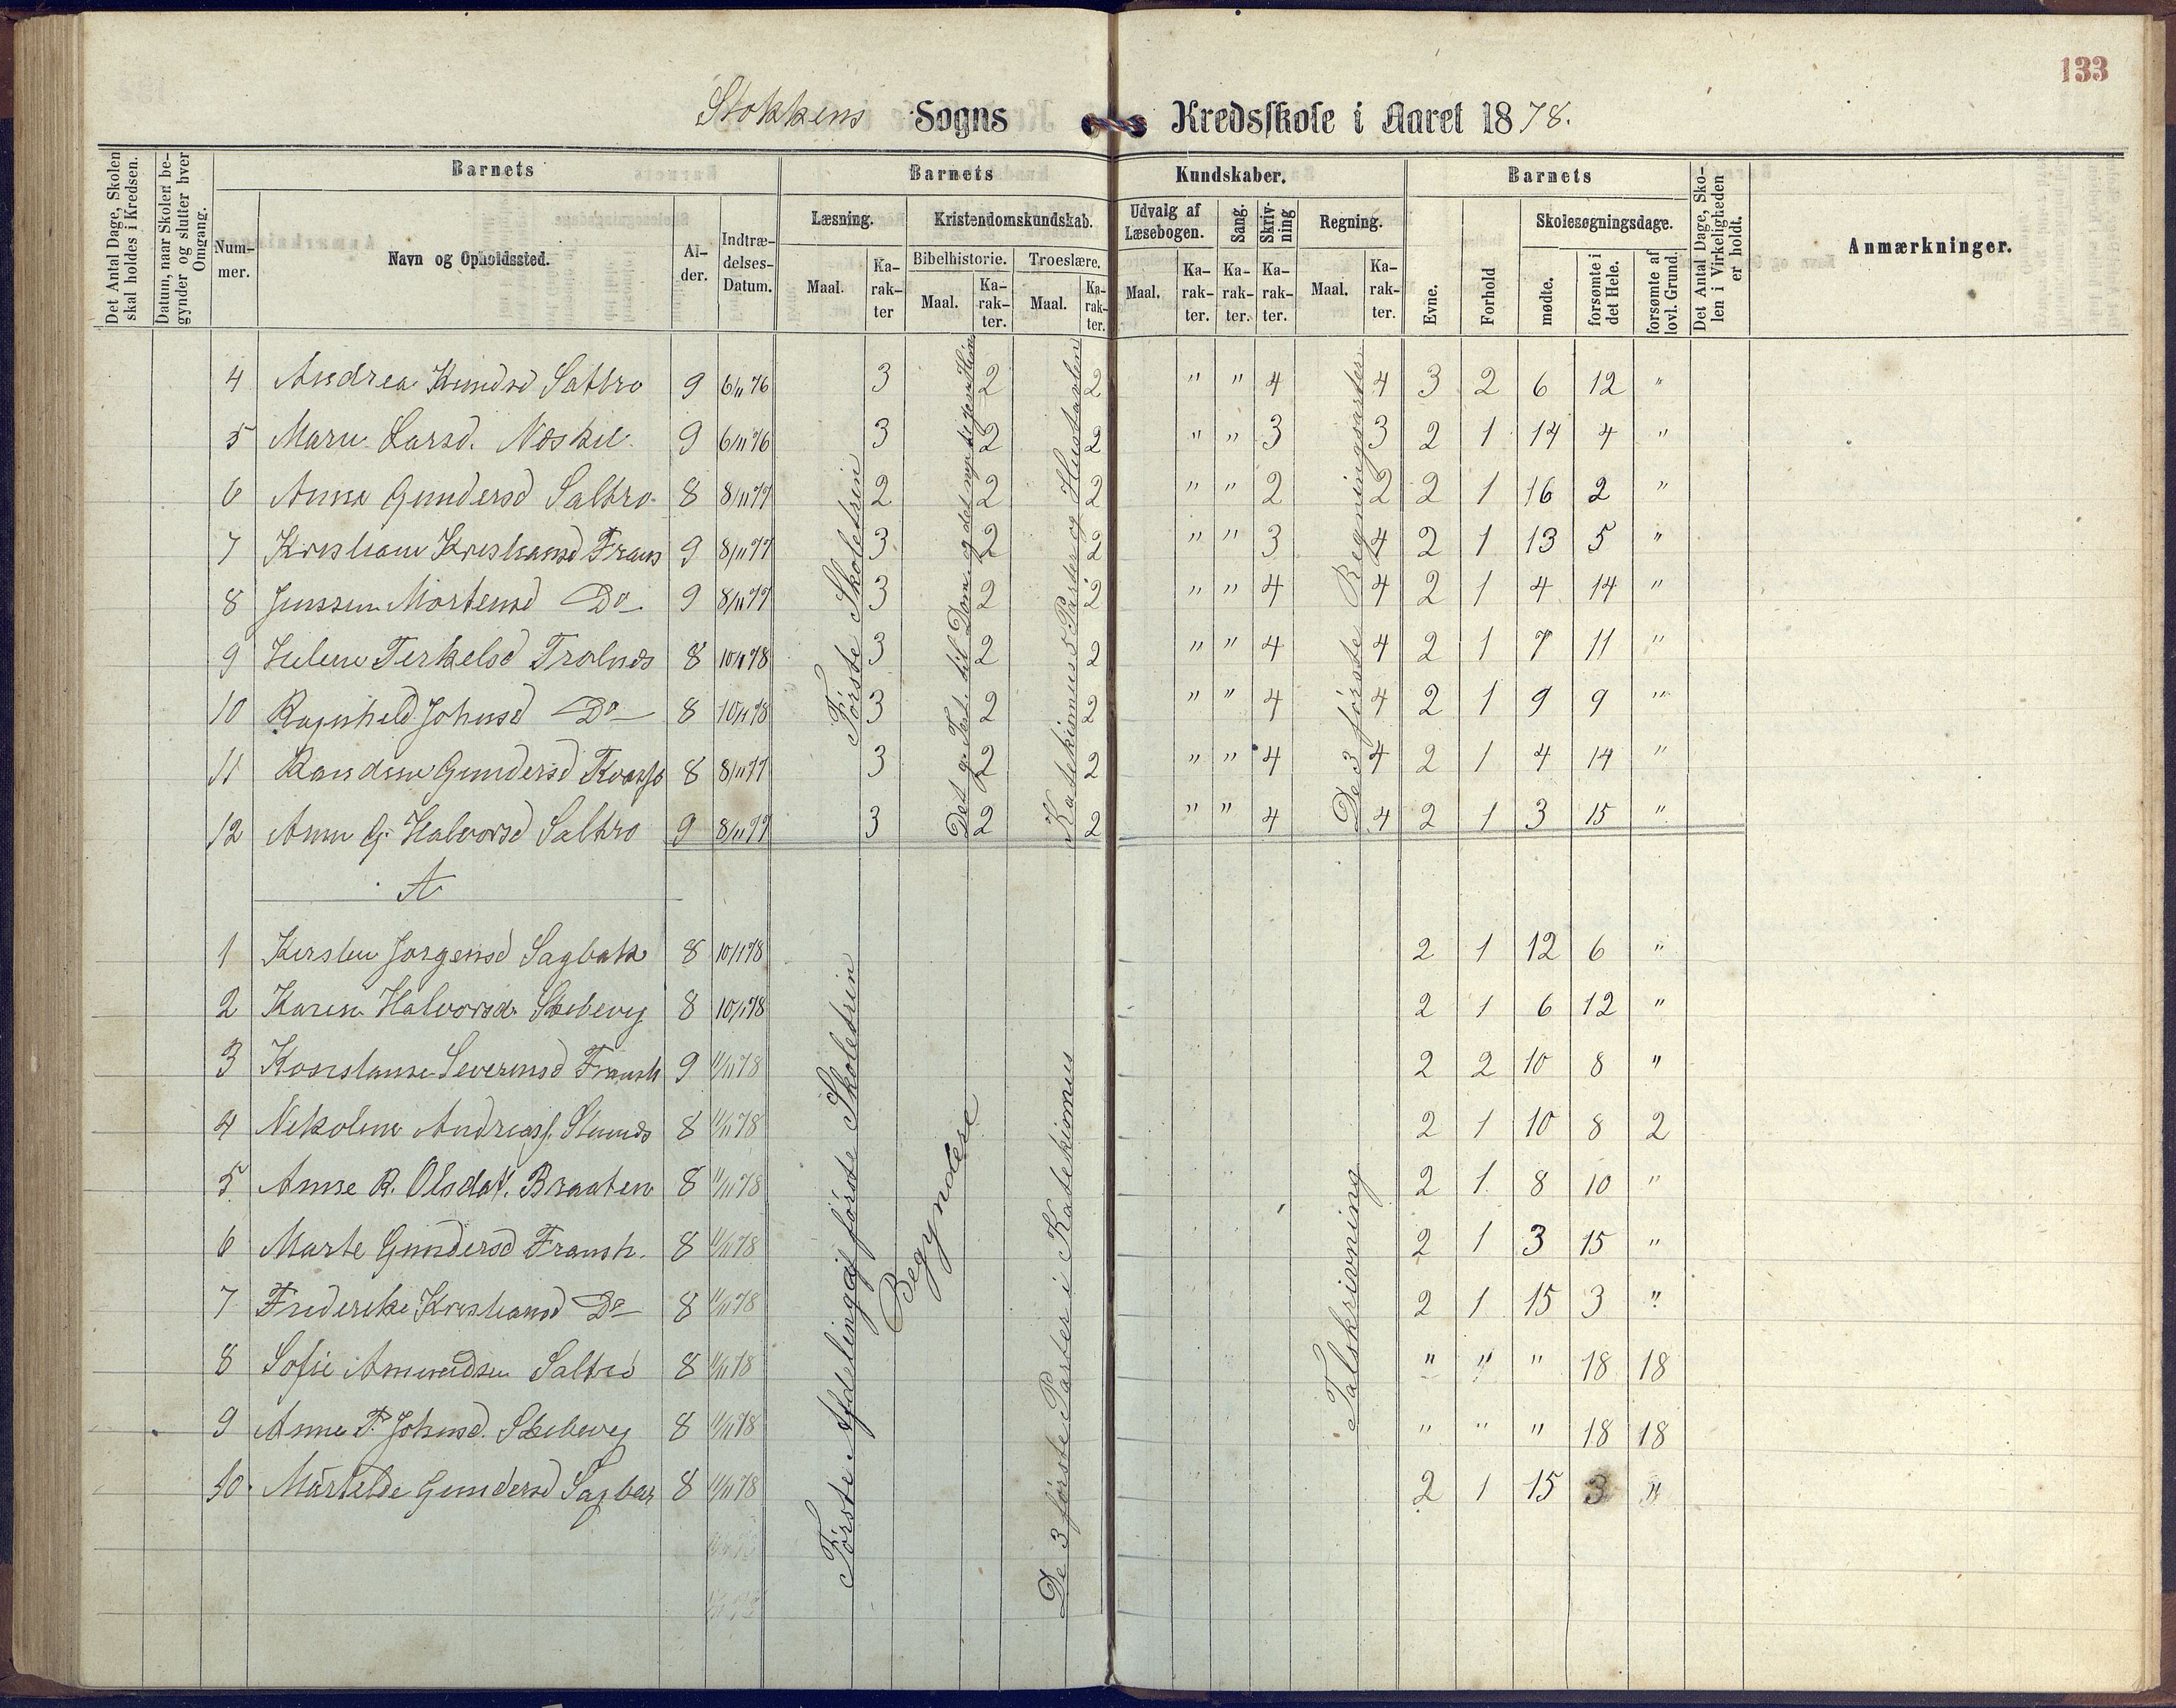 133
Stokkens Sogns Kredsskole i Aaret 1878.
Det Antal Dage, Skolen skal holdes i Kredsen.
Datum, naar Skolen begynder og slutter hver Omgang.
Barnets
Nummer.
Navn og Opholdssted.
Alder.
Indtrædelses-Datum.
Barnets Kundskaber.
Læsning.
Maal.
Karakter
Kristendomskundskab.
Bibelhistorie.
Maal.
Karakter.
Troeslære.
Maal.
Karakter.
Udvalg af Læsebogen.
Maal.
Karakter.
Sang.
Karakter.
Skrivning
Karakter.
Regning.
Maal.
Karakter.
Barnets
Evne.
Forhold
Skolesøgningsdage.
mødte.
forsømte i det Hele.
forsømte af lovl. Grund.
Det Antal Dage, Skolen i Virkeligheden er holdt.
Anmærkninger.
4 Andrea Knudsd Saltro 9 6/11 76 3 2 2 " " 4 4 3 2 6 12 "
5 Maru Larsd. Neskil 9 6/11 76 3 2 2 " " 3 3 2 1 14 4 "
6 Anne Gundersd Saltro 8 8/11 77 2 2 2 " " 2 2 2 1 16 2 "
7 Kristiane Kristiansd Frans 9 8/11 77 3 2 2 " " 3 4 2 1 13 5 "
8 Jenssine Mortensd Do 9 8/11 77 3 2 2 " " 4 4 2 1 4 14 "
9 Helene Terkelsd Trolnes 8 10/1 78 3 2 2 " " 4 4 2 1 7 11 "
10 Ragnhild Johnsd Do 8 10/1 78 3 2 2 " " 4 4 2 1 9 9 "
11 Gundersd 8 8/11 77 3 2 2 " " 4 4 2 1 4 14 "
12 Anne G. Halvorsd Saltro 9 8/11 77 3 2 2 " " 4 4 2 1 3 15 "
Første Skoletrin
Det g. Test. til Dom. og det nye til
Katekismus 5 Parter og Hustavlen
De 3 første Regningsarter
A
1 Kirsten Jorgensd Sagbakk 8 10/1 78 2 1 12 6 "
2 Karen Halvorsd. Skibevig 8 10/1 78 2 1 6 12 "
3 Konstanse Severinsd Fransh 9 11/11 78 2 2 10 8 "
4 Nikoline Andreasf. 8 11/11 78 2 1 10 8 2
5 Anne R. Olsdat. Braaten 8 11/11 78 2 1 8 10 "
6 Marte Gundersd Fransh. 8 11/11 78 2 1 3 15 "
7 Frederike Kristiansd Do 8 11/11 78 2 1 15 3 "
8 Sofie Amundsen Saltro 8 11/11 78 " " " 18 18
9 Anne T. Johnsd. Skibevig 8 11/11 78 " " " 18 18
10 Martilde Gundersd Sagbak 8 11/11 78 2 1 15 3 "
Første Afdeling af første Skoletrin
Begyndere
De 3 første Parter i Katekismus
Talskrivning